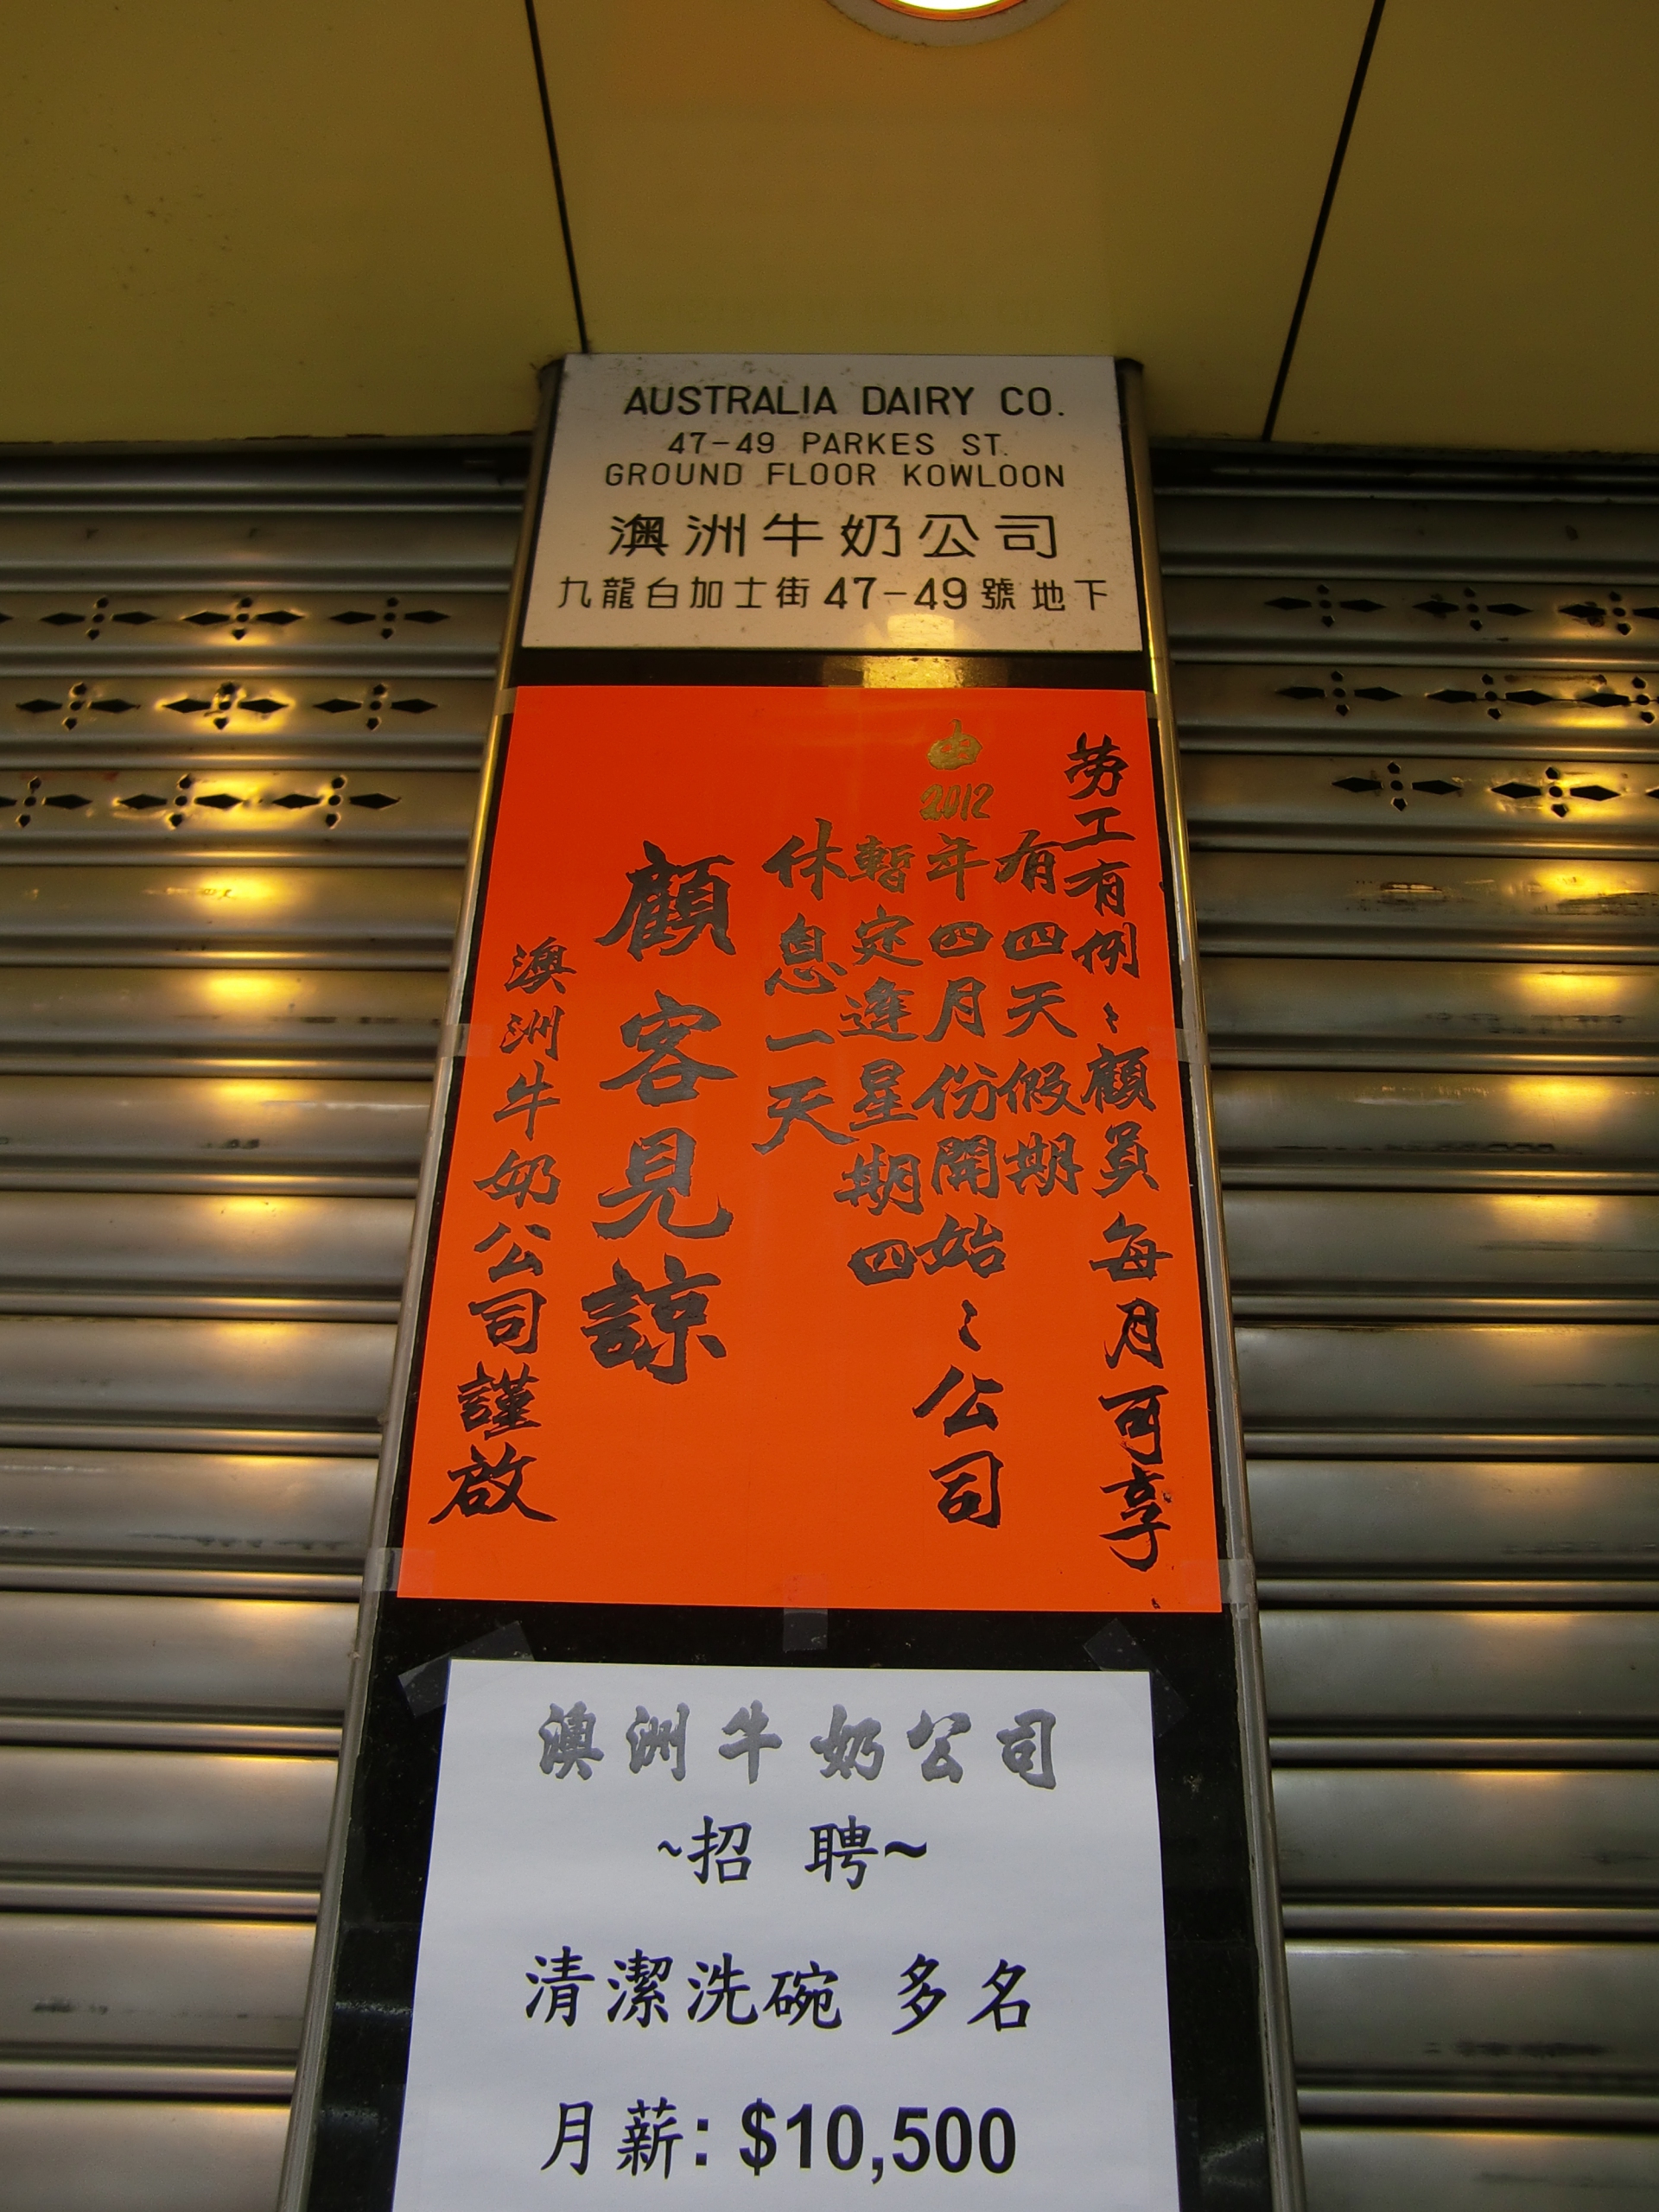 AUSTRALIA DAIRY CO.
47-49 PARKES ST.
GROUND FLOOR KOWLOON
澳洲牛奶公司
九龍白加士街47-49號地下
勞工有例、顧員每月可享
有四天假期
由2012年四月份開始、公司
暫定逢星期四
休息一天
顧客見諒
澳洲牛奶公司謹啟
澳洲牛奶公司
~招 聘~
清潔洗碗 多名
月薪: $10,500